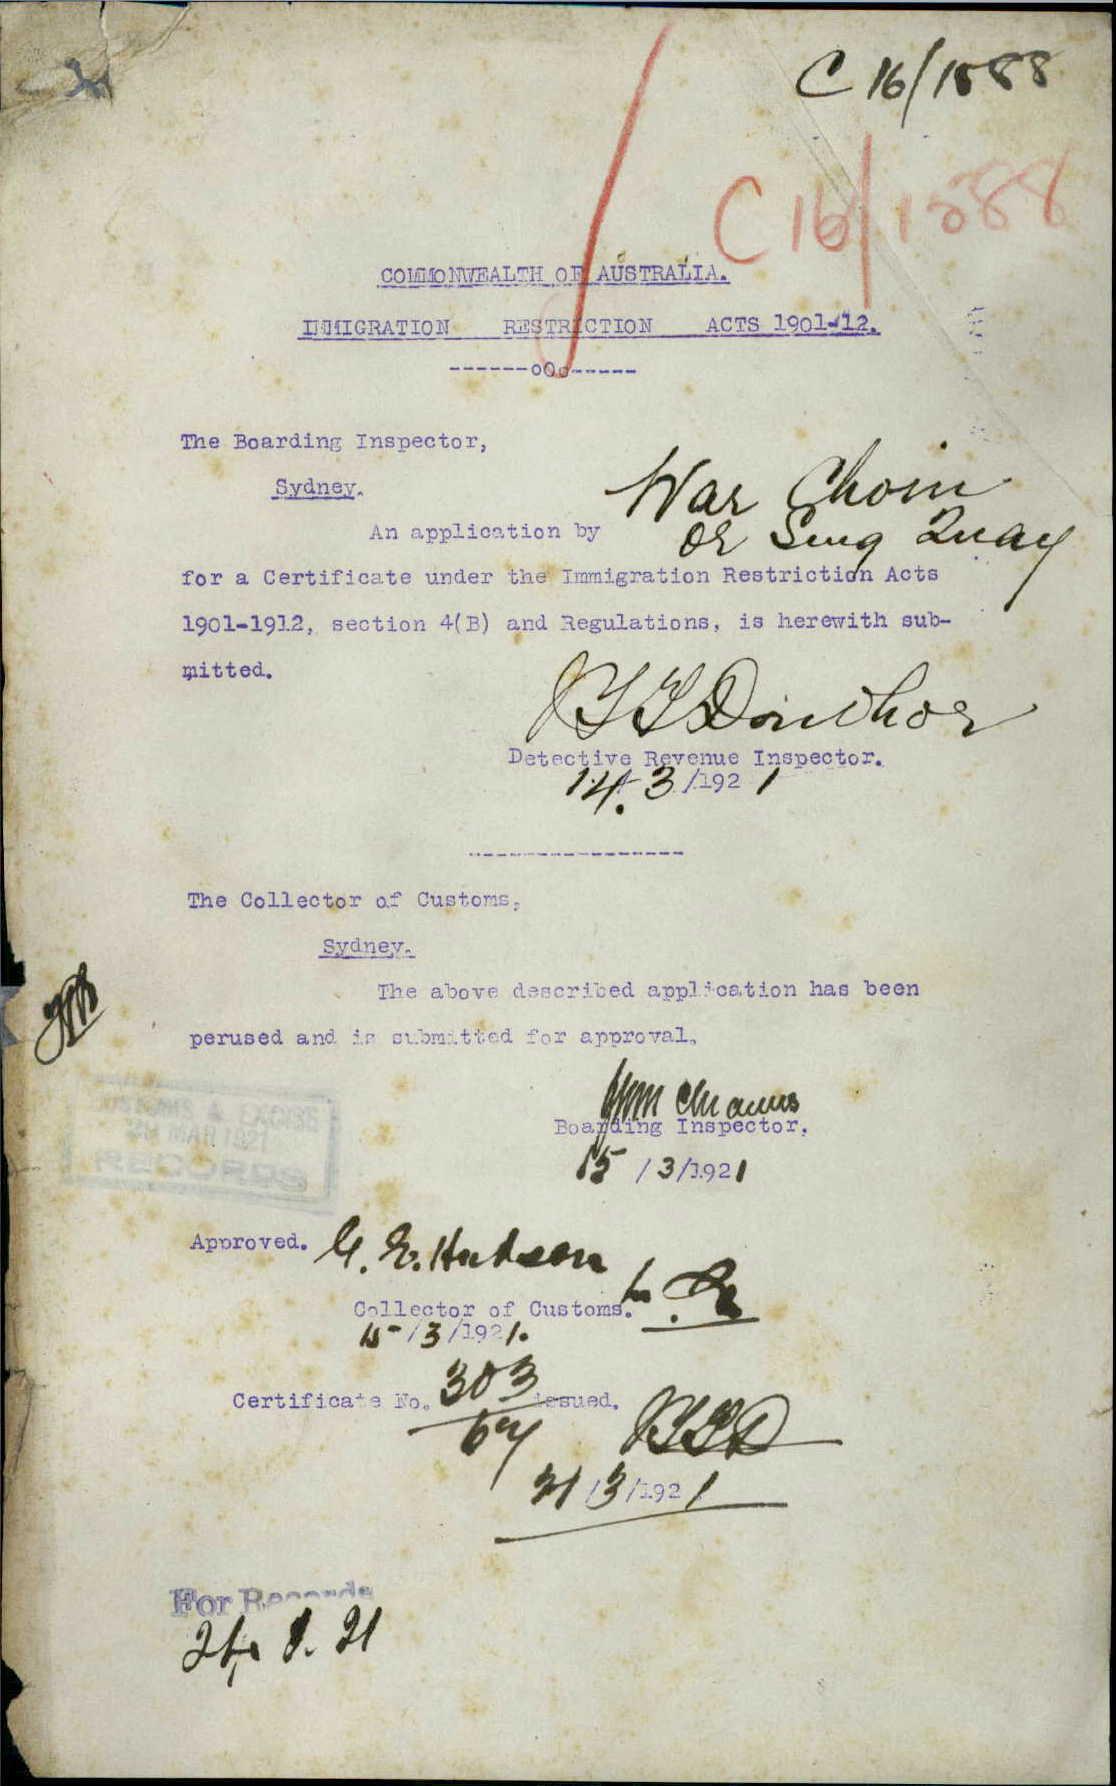 C 16/1588
C 16/1588
COMMONWEALTH OF AUSTRALIA.
IMMIGRATION RESTRICTION ACTS 1901-12.
------oOo-----
The Boarding Inspector,
Sydney.
War Choin
An application by or Sing Quay
for a Certificate under the Immigration Restriction Acts
1901-1912, section 4(B) and Regulations, is herewith sub-
mitted.
Detective Revenue Inspector.
14.3/1921
-----------------
The Collector of Customs,
Sydney.
The above described application has been
perused and is submitted for approval.
Boarding Inspector.
15/3/1921
CUSTOMS & EXCISE
MAR 1921
RECORDS
Approved. G. E. Hudson
Collector of Customs.
15/3/1921.
Certificate No. 303 issued.
67
21/3/1921
For Records
21